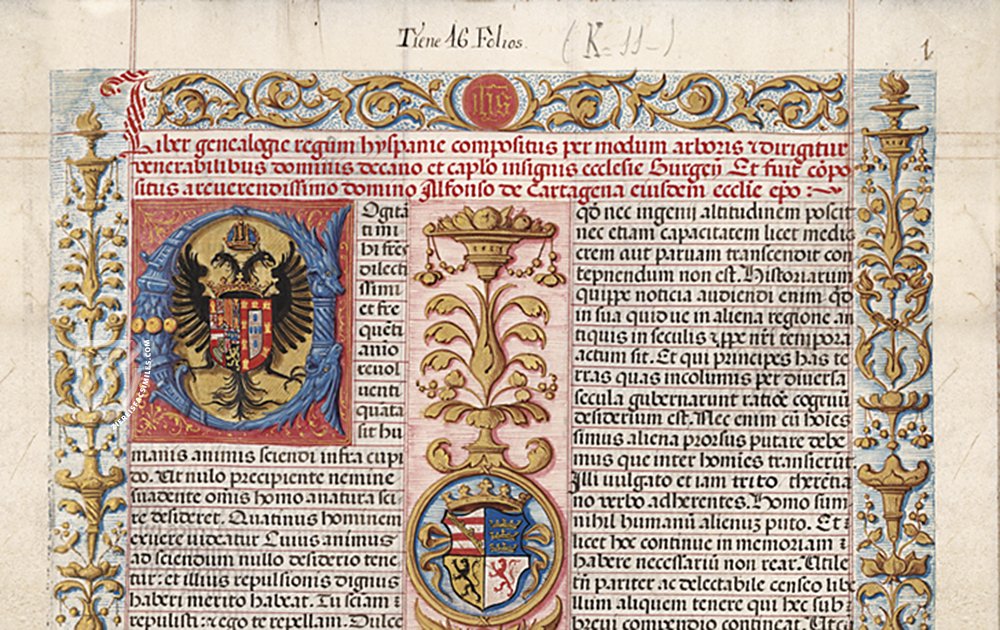 Tiene 16 Folios. (K=11-) 1
ihs
Liber genealogie regum hyspanie compositus per modum arboris & dirigitur
venerabilibus dominis decano et caplo insignis ecclesie Burgeñ Et fuit cõpo
situs a reverendissimo domino Alfonso de cartagena eiusdem ecclie epo :~
Ogita
ti mi
hi fres
dilecti
ssimi
et fre
quẽti
anio
reuol
uenti
quata
sit hu
manis animis sciendi infra cupi
do. Ut nulo precipiente nemine
suadente omis homo a natura sci
re desideret. Quatinus hominem
exuere uideatur Cuius animus
ad sciendum nullo desiderio tene
tur: et illius repulsionis dignus
haberi merito habeat. Tu sciam :
repulisti: & ego te repellam. Dulce
qõ nec ingenij altitudinem poscit
nec etiam capacitatem licet medio
crem aut paruam transcendit con
tepnendum non est. Historiarum
quippe noticia audiendi enim qd
in sua quid ue in aliena regione an
tiquis in seculis & ppe nri tempora
actum sit. Et qui principes has te
rras quas incolumis per diuersa
secula gubernarunt ratiõe cognitu
desiderium est. Nec enim cũ hoies
simus aliena prorsus putare debe
mus que inter homies transierũt
Illi uulgato et iam trito therẽtia
no verbo adherentes. Homo sum
nihil humanũ alienũ puto. Et :
licet hoc continue in memoriam :
habere necessariũ non rear. Utile
tñ pariter ac delectabile censeo libe
llum aliquem tenere qui hec sub :
breui compendio contineat. Ut cũ
WWW.FINEFACSIMILES.COM